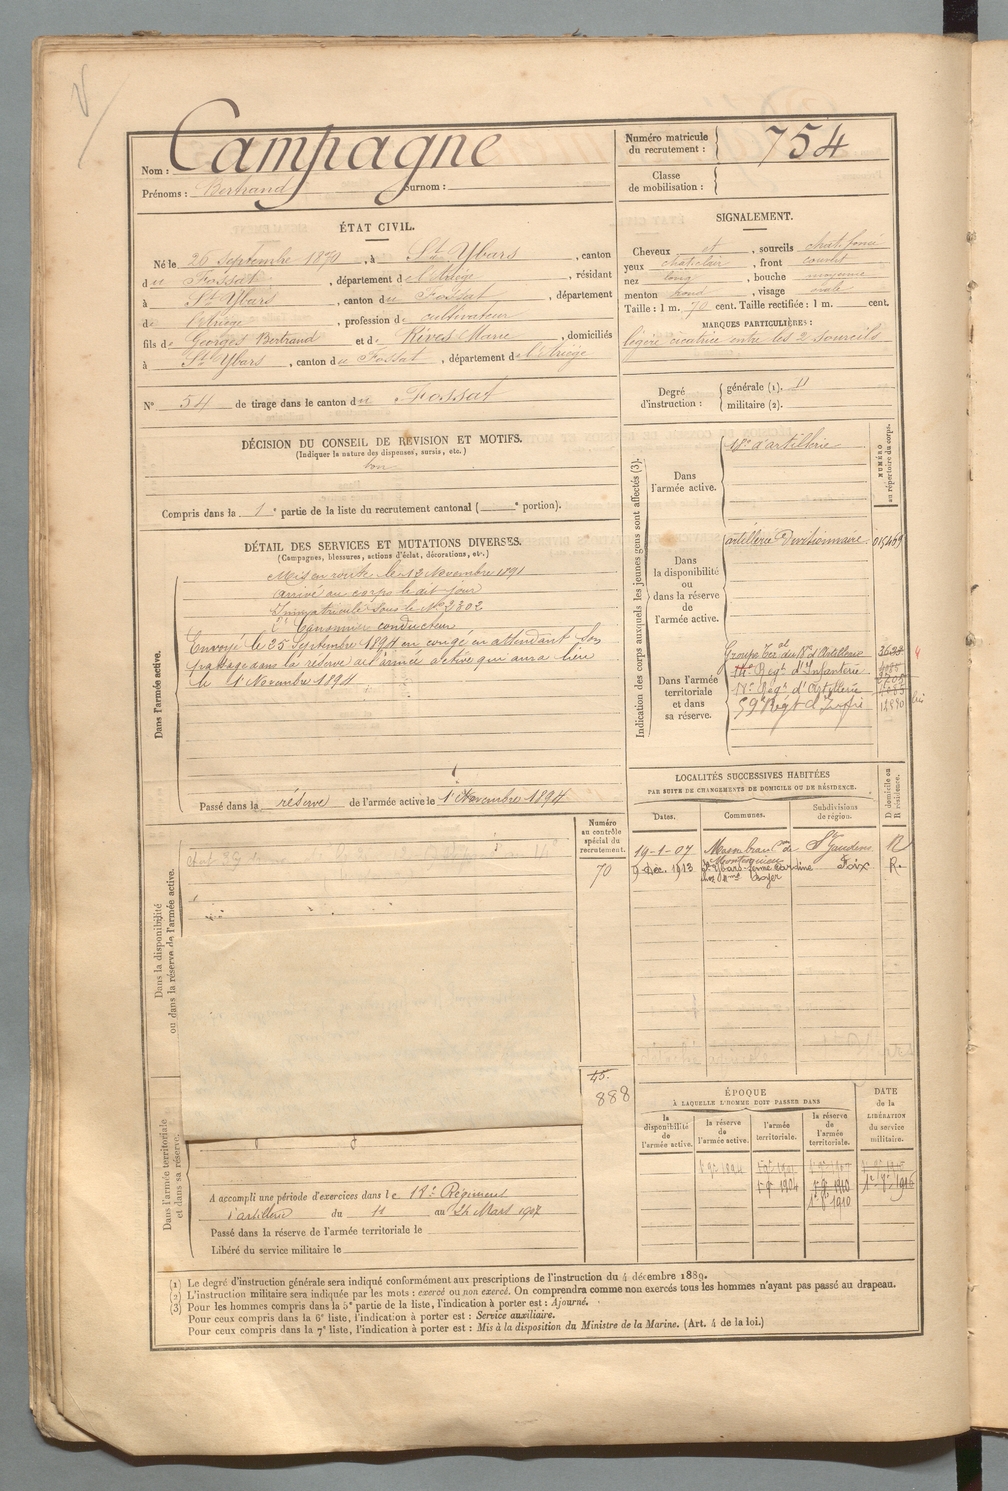 Nom : Campagne
Prénoms : Bertrand Surnom :
Numéro matricule du recrutement : 754
Classe de mobilisation :
ÉTAT CIVIL.
Né le 26 Septembre 1870, à St Ybars, canton
du Fossat, département de l'Ariège, résidant
à St Ybars, canton du Fossat, département
de l'Ariège, profession de cultivateur
fils de Georges Bertrand et de Rives Marie, domiciliés
à St Ybars, canton du Fossat, département de l'Ariège
N° 54 de tirage dans le canton du Fossat
SIGNALEMENT.
Cheveux et, sourcils chât. foncé
yeux chât. clair, front couvert
nez long, bouche moyenne
menton rond, visage ovale
Taille : 1 m. 70 cent. Taille rectifiée : 1 m. cent.
MARQUES PARTICULIÈRES :
légère cicatrice entre les 2 sourcils
Degré d'instruction : générale (1).
militaire (2).
DÉCISION DU CONSEIL DE REVISION ET MOTIFS.
(Indiquer la nature des dispenses, sursis, etc.)
bon
Compris dans la 1e partie de la liste du recrutement cantonal ( e portion).
DÉTAIL DES SERVICES ET MUTATIONS DIVERSES.
(Campagnes, blessures, actions d'éclat, décorations, etc.)
Dans l'armée active.
Mis en route le 13 Novembre 1891
arrivé au corps le dit jour
Immatriculé sous le N° 2302
Canonnier conducteur
Envoyé le 25 Septembre 1894 en congé en attendant son
passage dans la réserve de l'armée active qui aura lieu
le 1er Novembre 1894
Passé dans la réserve de l'armée active le 1er Novembre 1894
Indication des corps auxquels les jeunes gens sont affectés (3).
NUMÉRO au répertoire du corps.
Dans l'armée active.
18e d'artillerie
Dans la disponibilité ou dans la réserve de l'armée active.
artillerie Divisionnaire 015459
Dans l'armée territoriale et dans sa réserve.
Groupe Teral du 17e d'Artillerie
Regt d'Infanterie
17e Régt d'Artillerie
59e Régt d'Infie
LOCALITÉS SUCCESSIVES HABITÉES
PAR SUITE DE CHANGEMENTS DE DOMICILE OU DE RÉSIDENCE.
Dates. Communes. Subdivisions de région. D. domicile ou R. résidence.
19-1-07 St Gaudens R
9 déc. 1913 St Ybars Foix R.
Numéro au contrôle spécial du recrutement.
70
45.
888
Dans la disponibilité ou dans la réserve de l'armée active.
Dans l'armée territoriale et dans sa réserve.
A accompli une période d'exercices dans le 18e Régiment
d'artillerie du 11 au 24 Mars 1907
Passé dans la réserve de l'armée territoriale le
Libéré du service militaire le
ÉPOQUE
À LAQUELLE L'HOMME DOIT PASSER DANS
la disponibilité de l'armée active.
la réserve de l'armée active.
l'armée territoriale.
la réserve de l'armée territoriale.
DATE de la LIBÉRATION du service militaire.
(1) Le degré d'instruction générale sera indiqué conformément aux prescriptions de l'instruction du 4 décembre 1889.
(2) L'instruction militaire sera indiquée par les mots : exercé ou non exercé. On comprendra comme non exercés tous les hommes n'ayant pas passé au drapeau.
(3) Pour les hommes compris dans la 5e partie de la liste, l'indication à porter est : Ajourné.
Pour ceux compris dans la 6e liste, l'indication à porter est : Service auxiliaire.
Pour ceux compris dans la 7e liste, l'indication à porter est : Mis à la disposition du Ministre de la Marine. (Art. 4 de la loi.)